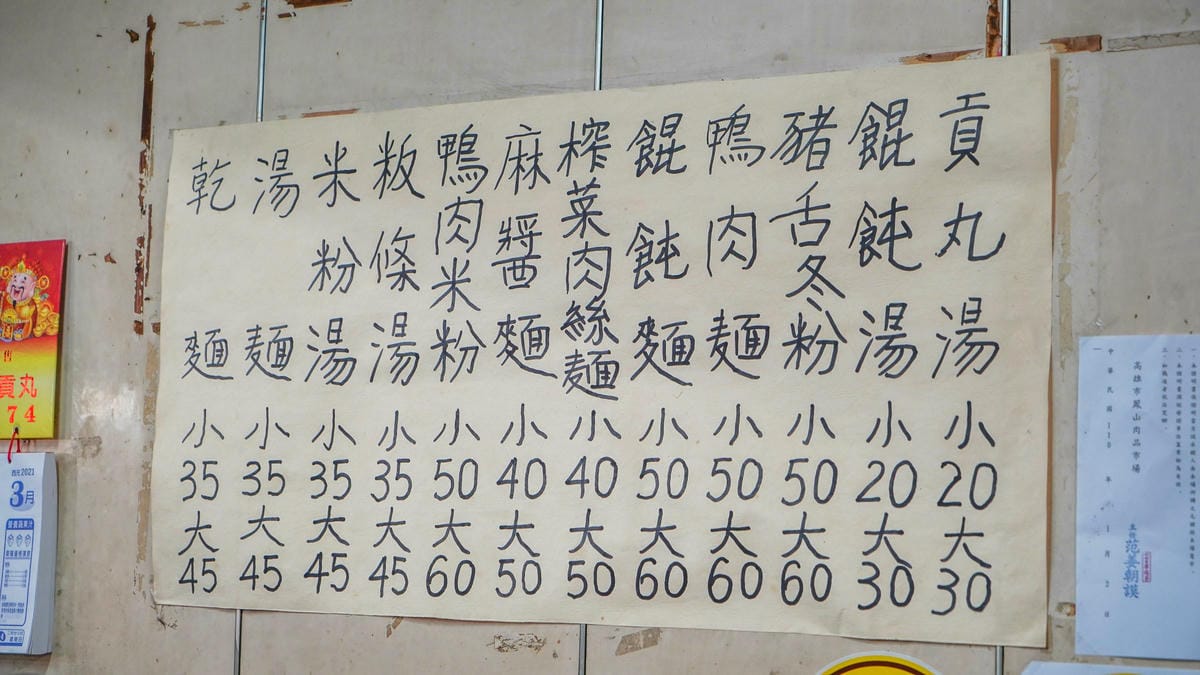 貢丸湯小20大30
餛飩湯小20大30
豬舌冬粉小50大60
鴨肉麵小50大60
餛飩麵小50大60
榨菜肉絲麵小40大50
麻醬麵小40大50
鴨肉米粉小50大60
粄條湯小35大45
米粉湯小35大45
湯麵小35大45
乾麵小35大45
售
貢丸
74
西元2021
3月
高雄市鳳山肉品市場